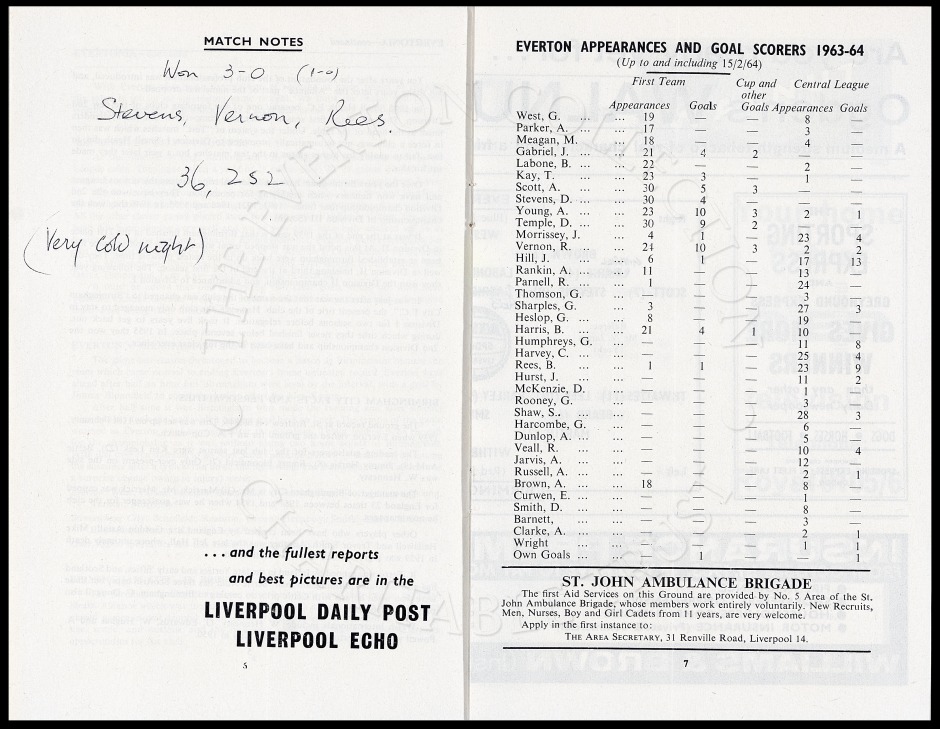 MATCH NOTES
Won 3-0 (1-0)
Stevens, Vernon, Rees.
36,252
(Very cold night)
...and the fullest reports
and best pictures are in the
LIVERPOOL DAILY POST
LIVERPOOL ECHO
5
EVERTON APPEARANCES AND GOAL SCORERS 1963-64
(Up to and including 15/2/64)
First Team Cup and other Central League
Appearances Goals Goals Appearances Goals
West, G. ... ... 19 — — 8 —
Parker, A. ... ... 17 — — 3 —
Meagan, M. ... 18 — — 4 —
Gabriel, J. ... ... 21 4 2 — —
Labone, B. ... ... 22 — — 2 —
Kay, T. ... ... 23 3 — 1 —
Scott, A. ... ... 30 5 3 — —
Stevens, D. ... ... 30 4 — — —
Young, A. ... ... 23 10 3 2 1
Temple, D. ... ... 30 9 2 — —
Morrissey, J. ... 4 1 — 23 4
Vernon, R. ... ... 24 10 3 2 2
Hill, J. ... ... 6 1 — 17 13
Rankin, A. ... ... 11 — — 13 —
Parnell, R. ... ... 1 — — 24 —
Thomson, G. ... — — — 3 —
Sharples, G. ... 3 — — 27 3
Heslop, G. ... ... 8 — — 19 —
Harris, B. ... ... 21 4 1 10 —
Humphreys, G. ... — — — 11 8
Harvey, C. ... ... — — — 25 4
Rees, B. ... ... 1 1 — 23 9
Hurst, J. ... ... — — — 11 2
McKenzie, D. ... — — — 1 —
Rooney, G. ... — — — 3 —
Shaw, S.. ... ... — — — 28 3
Harcombe, G. ... — — — 6 —
Dunlop, A. ... ... — — — 5 —
Veall, R. ... ... — — — 10 4
Jarvis, A. ... ... — — — 12 —
Russell, A. ... ... — — — 2 1
Brown, A. ... ... 18 — — 8 —
Curwen, E. ... ... — — — 1 —
Smith, D. ... ... — — — 8 —
Barnett, ... — — — 3 —
Clarke, A. ... ... — — — 2 1
Wright ... ... — — — 1 1
Own Goals ... ... 1 — — 1
ST. JOHN AMBULANCE BRIGADE
The first Aid Services on this Ground are provided by No. 5 Area of the St.
John Ambulance Brigade, whose members work entirely voluntarily. New Recruits,
Men, Nurses, Boy and Girl Cadets from 11 years, are very welcome.
Apply in the first instance to:
THE AREA SECRETARY, 31 Renville Road, Liverpool 14.
7